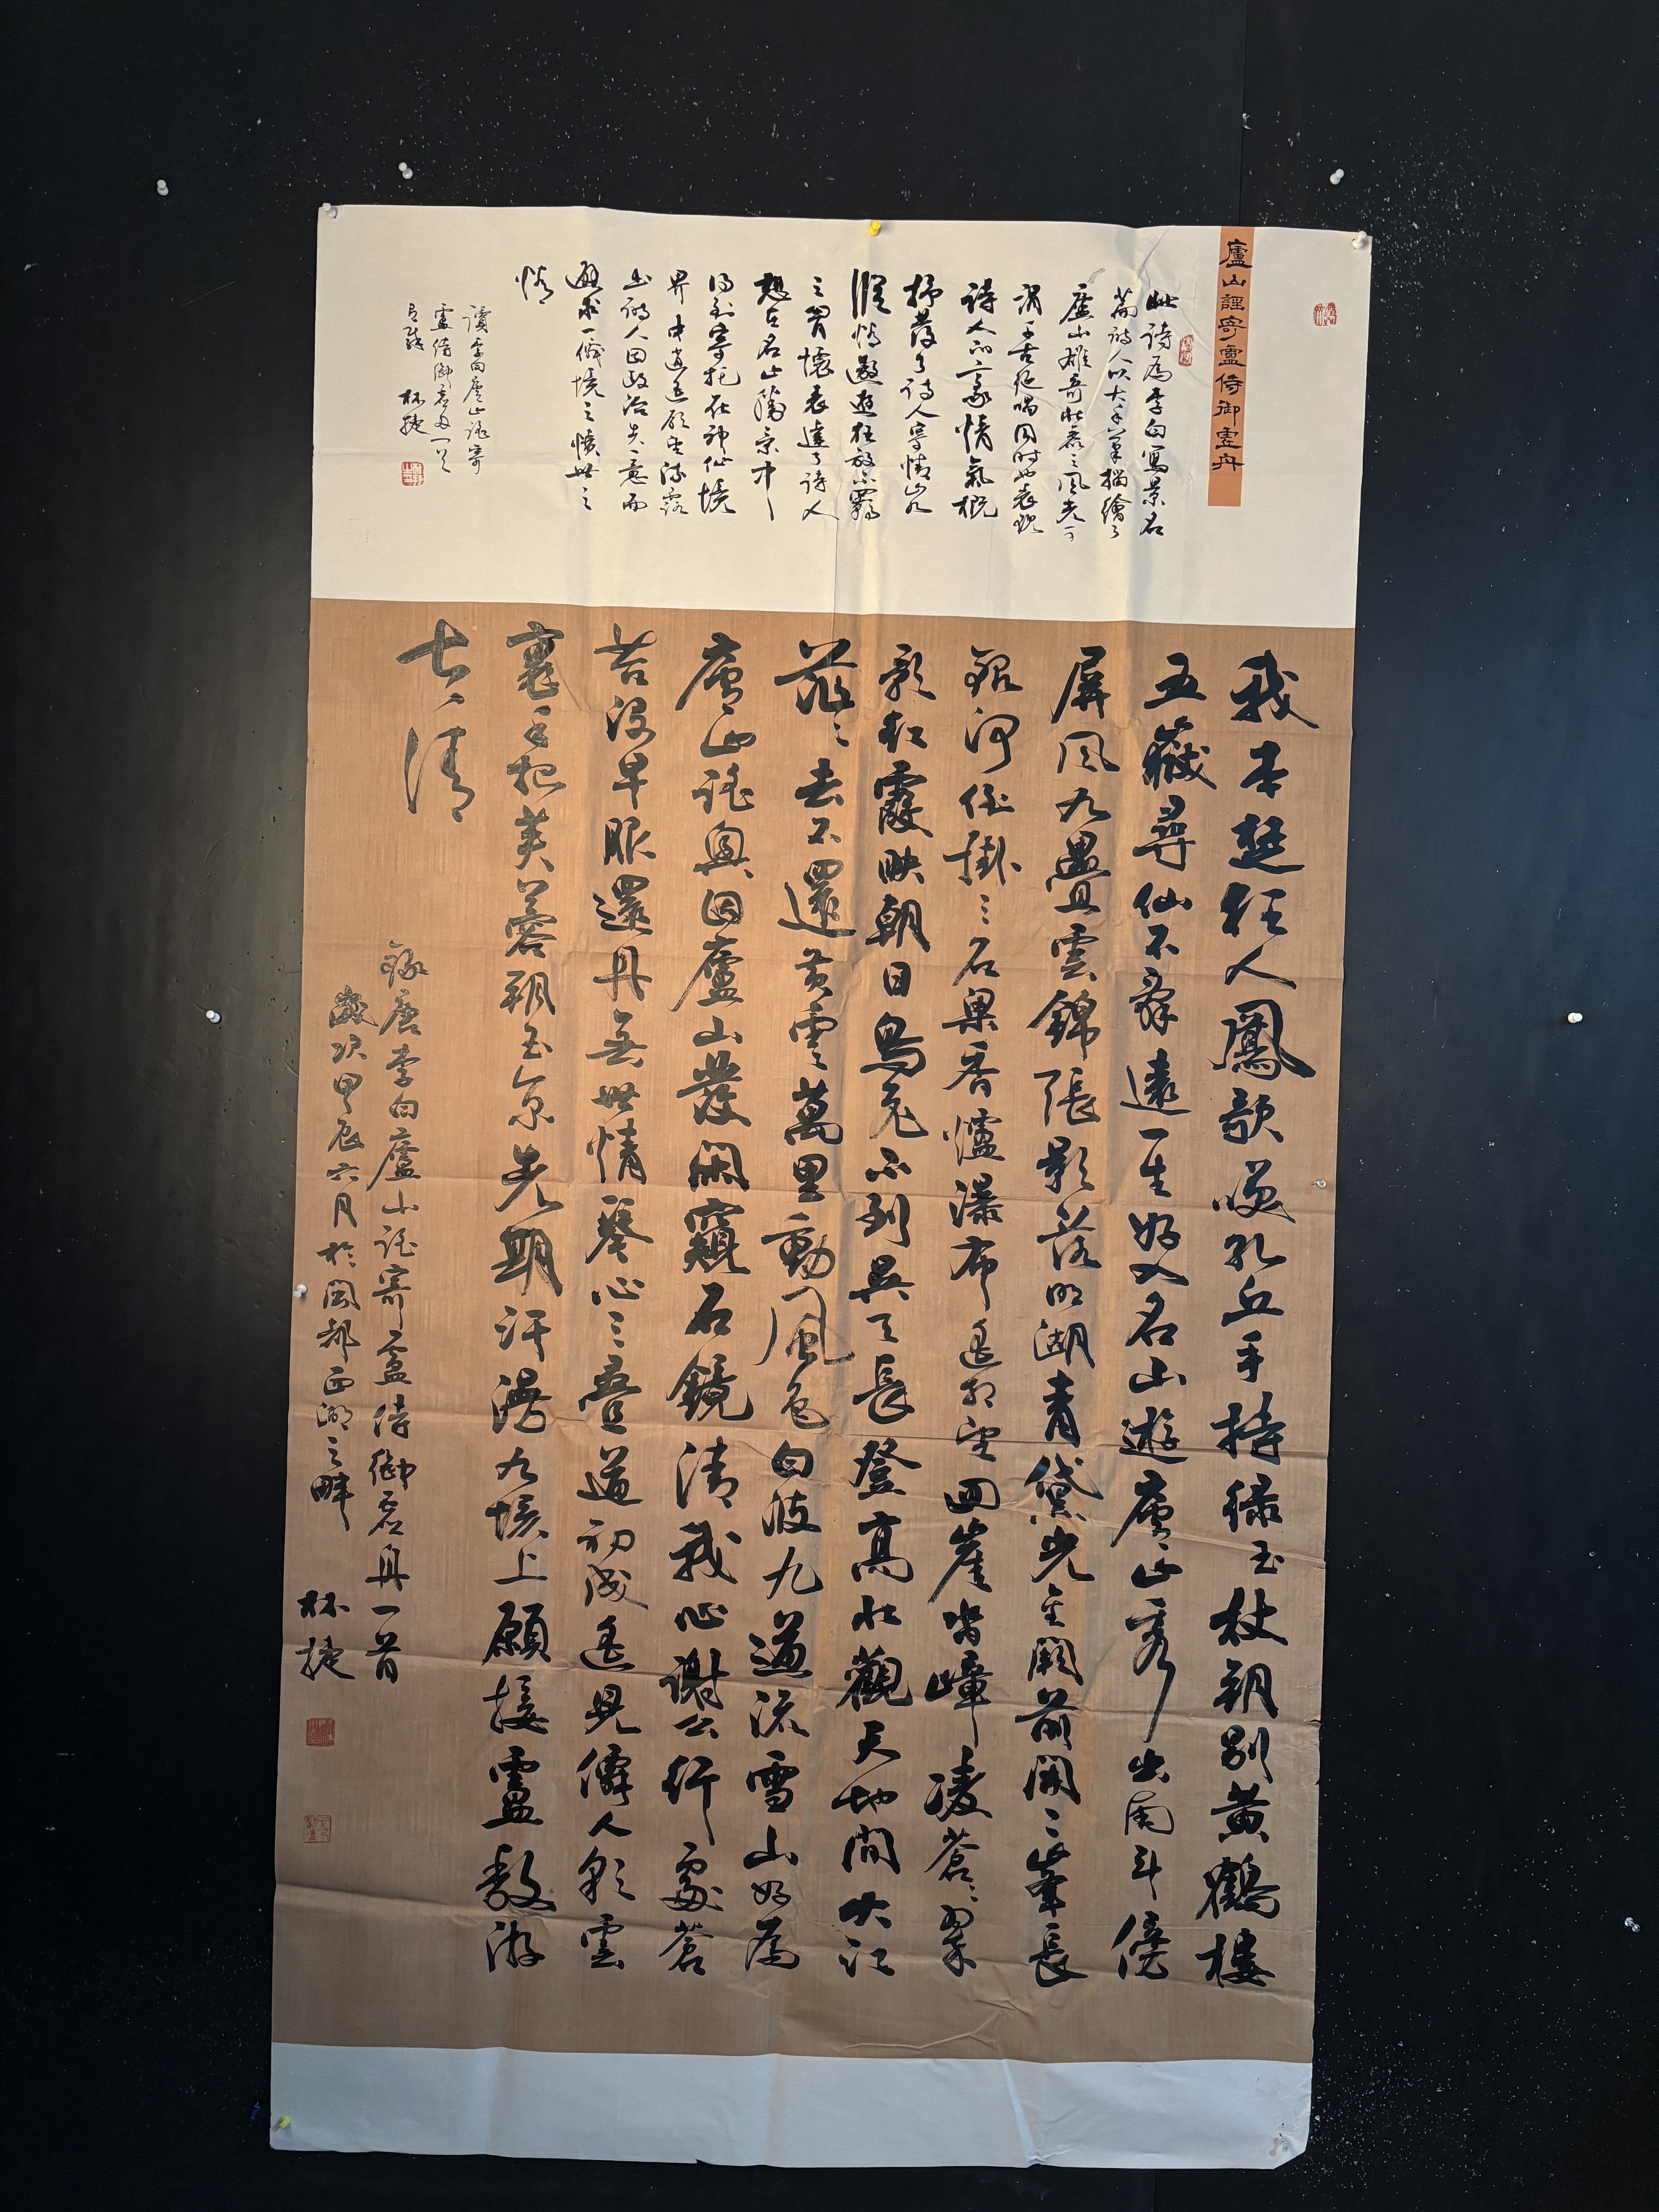 廬山謠寄盧侍御虛舟
此詩為李白寫景名
篇詩人以大手筆描繪了
廬山雄奇壯麗之風光可
謂千古絕唱同時也表現
詩人的豪情氣概
抒發了詩人寄情山水
縱情遨遊狂放不羈
之胃懷表達了詩人
想在名山勝景中
得到寄托在神仙境
界中逍遙願望流露
出詩人因政治失意而
避求一僊境之憤世之
情
讀李白廬山謠寄
盧侍御虛舟一首
有感 林捷
我本楚狂人鳳歌笑孔丘手持綠玉杖朝別黃鶴樓
五嶽尋仙不辭遠一生好入名山遊廬山秀出南斗傍
屏風九疊雲錦張影落明湖青黛光金闕前開二峯長
銀河倒掛三石梁香爐瀑布遙相望迴崖沓嶂凌蒼蒼翠
影紅霞映朝日鳥飛不到吳天長登高壯觀天地間大江
茫茫去不還黃雲萬里動風色白波九道流雪山好為
廬山謠興因廬山發閑窺石鏡清我心謝公行處蒼
苔沒早服還丹無世情琴心三疊道初成遙見僊人彩雲
裏手把芙蓉朝玉京先期汗漫九垓上願接盧敖遊
太清
錄唐李白廬山謠寄盧侍御虛舟一首
歲次甲辰六月於閩都西湖之畔 林捷